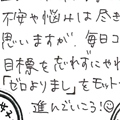 不安や悩みは尽き
思いますが、毎日コ
目標を忘れずにやれ
「ゼロよりまし」をモット
進んでいこう!